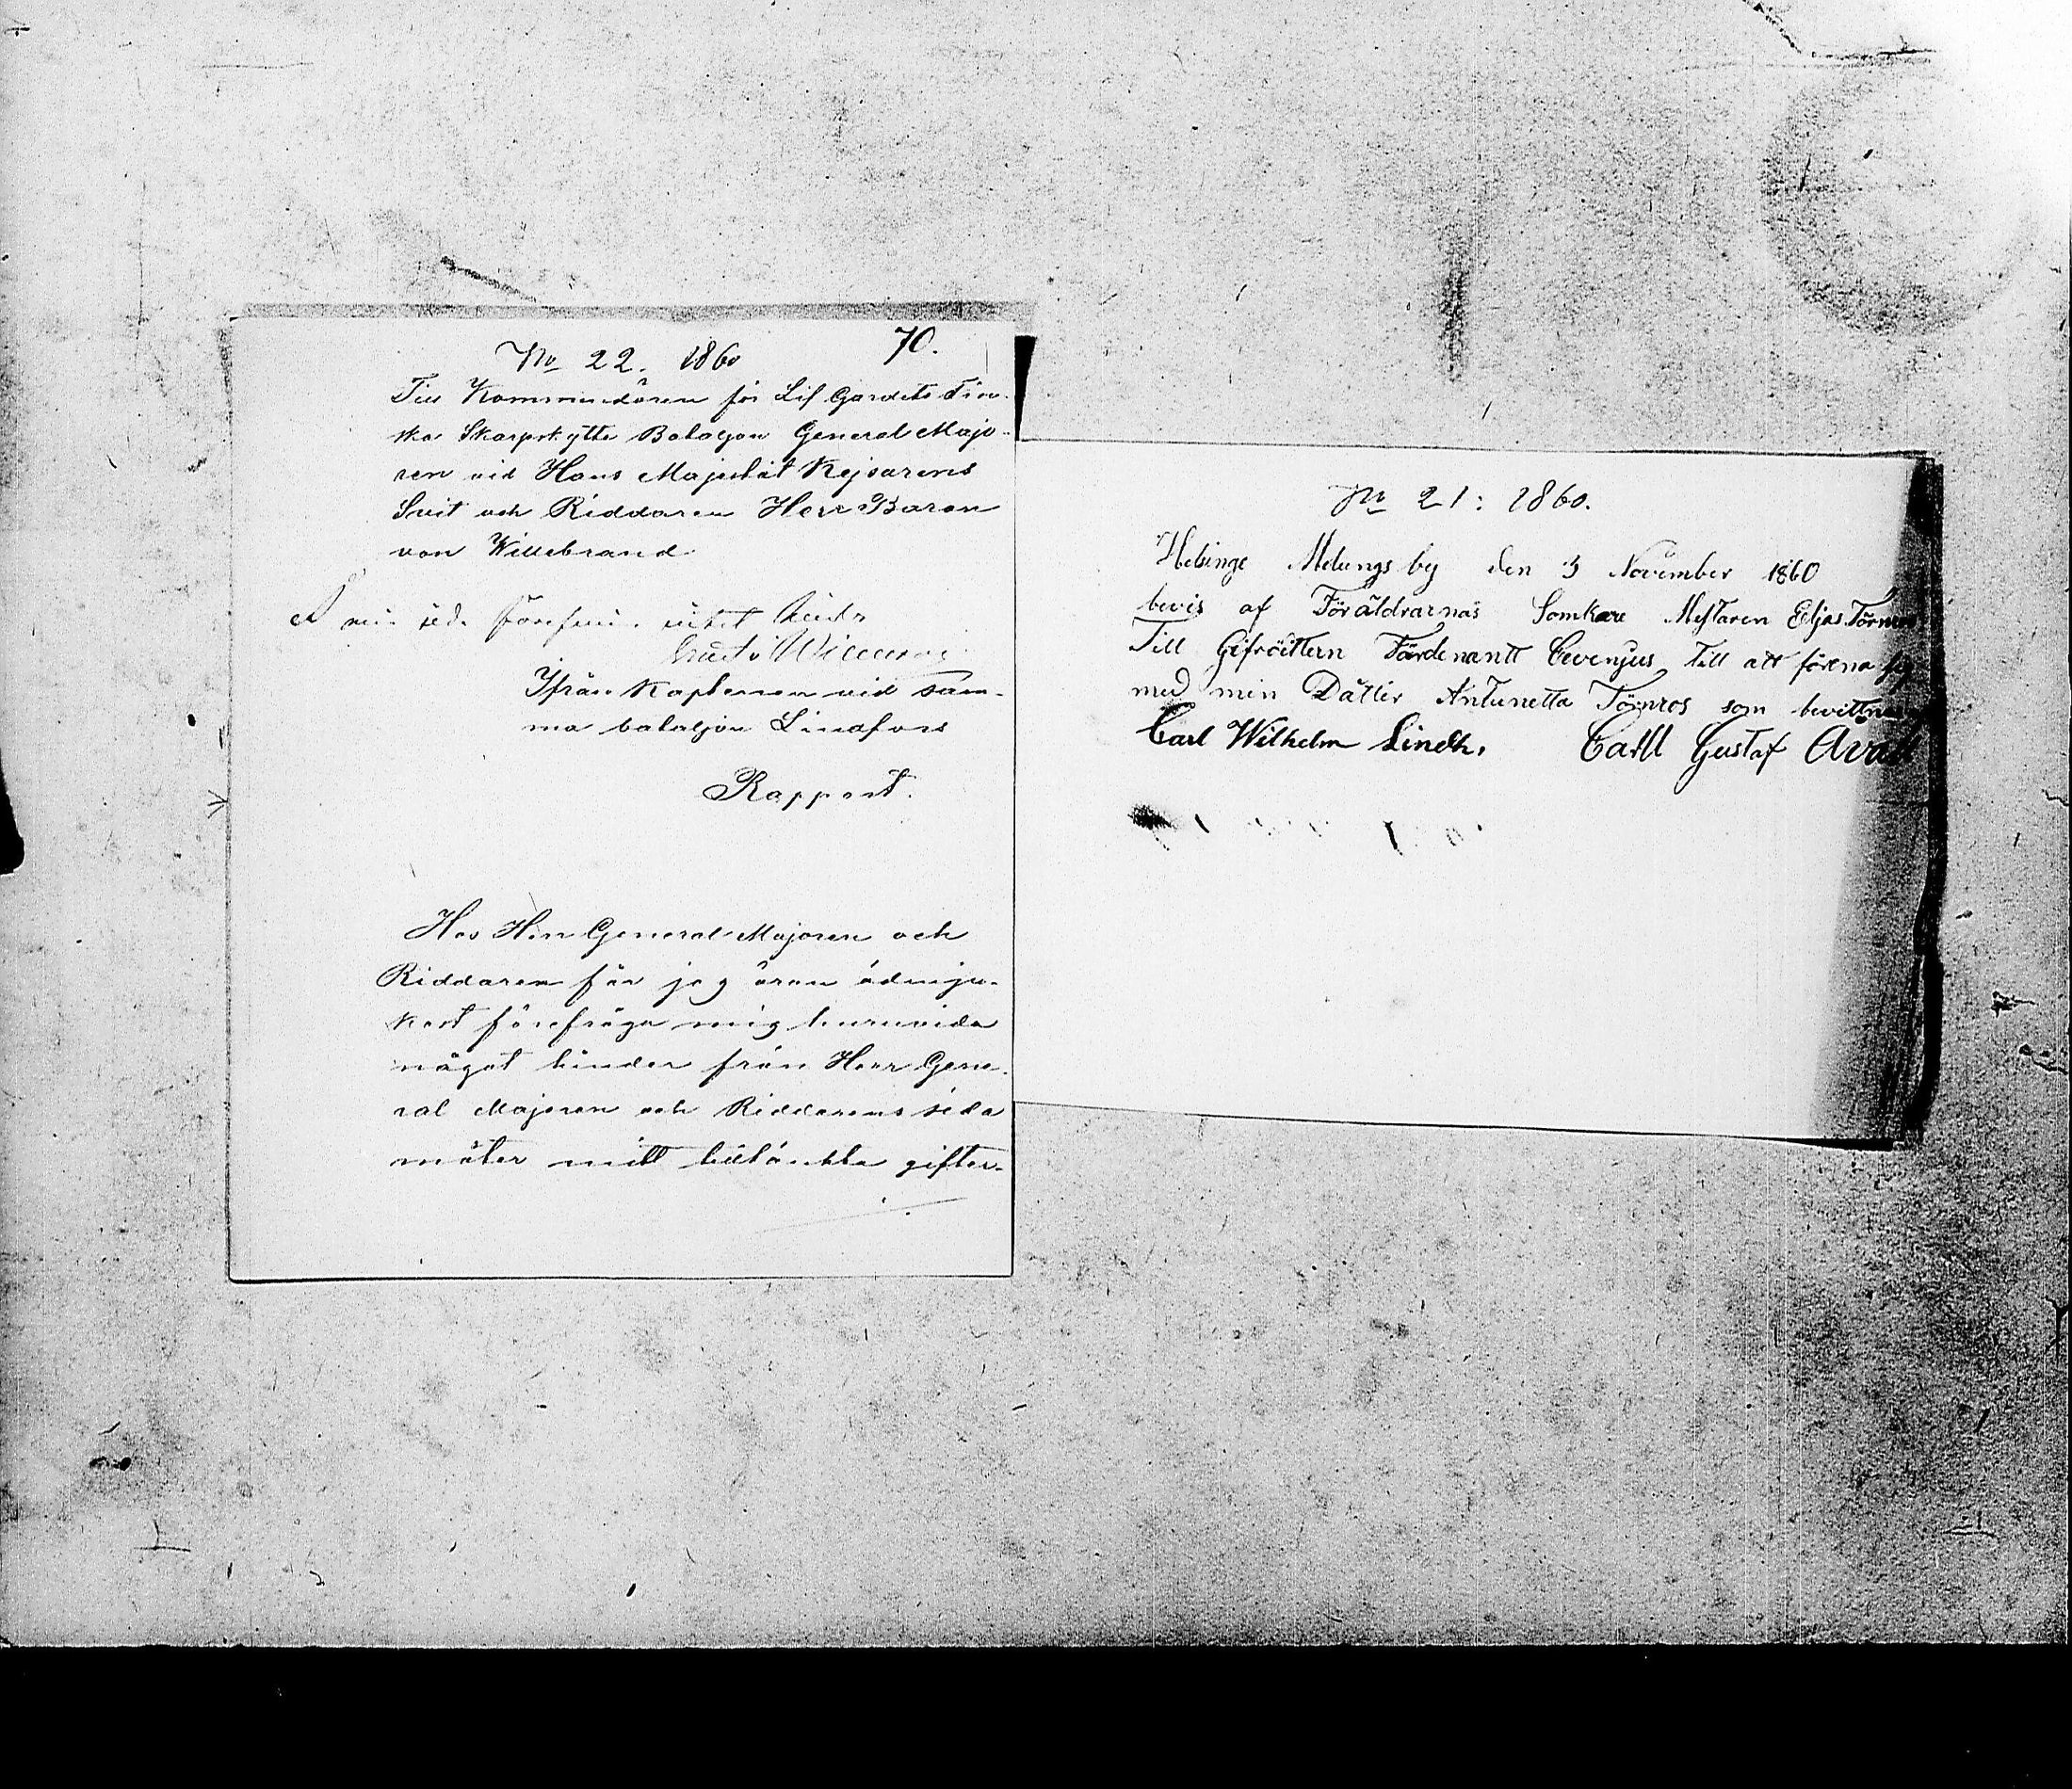 70.
No 22. 1860
Till Kommendören för Lif Gardets Fin-
ska Skarpskytte Bataljon General Majo-
ren vid Hans Majestät Kejsarens
Svit och Riddaren Herr Baron
von Willebrand
min sida förefinnes intet hinder
Ifrån Kaptenen vid sam-
ma bataljon Lindfors
Rapport.
Hos Herr General Majoren och
Riddaren får jag äran ödmju-
kast förefråga mig huruvida
något hinder från Herr Gene-
ral Majoren och Riddarens sida
möter mitt tilltänkta gifter-
No 21: 1860.
Helsinge Melungsby den 3 November 1860
bevis af Föräldrarnas Somkare Mestaren Eljas Törnros
Till Gifröttern Färdenantt Cevenjus till att förena sig
med min Dåtter Antunetta Törnros som bevittnas
Carl Wilhelm Lindh. Carll Gustaf